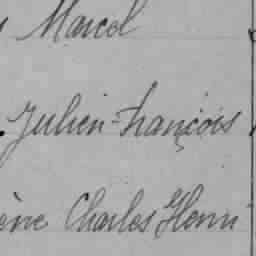 Marcel
Julien-François
ène Charles Henri